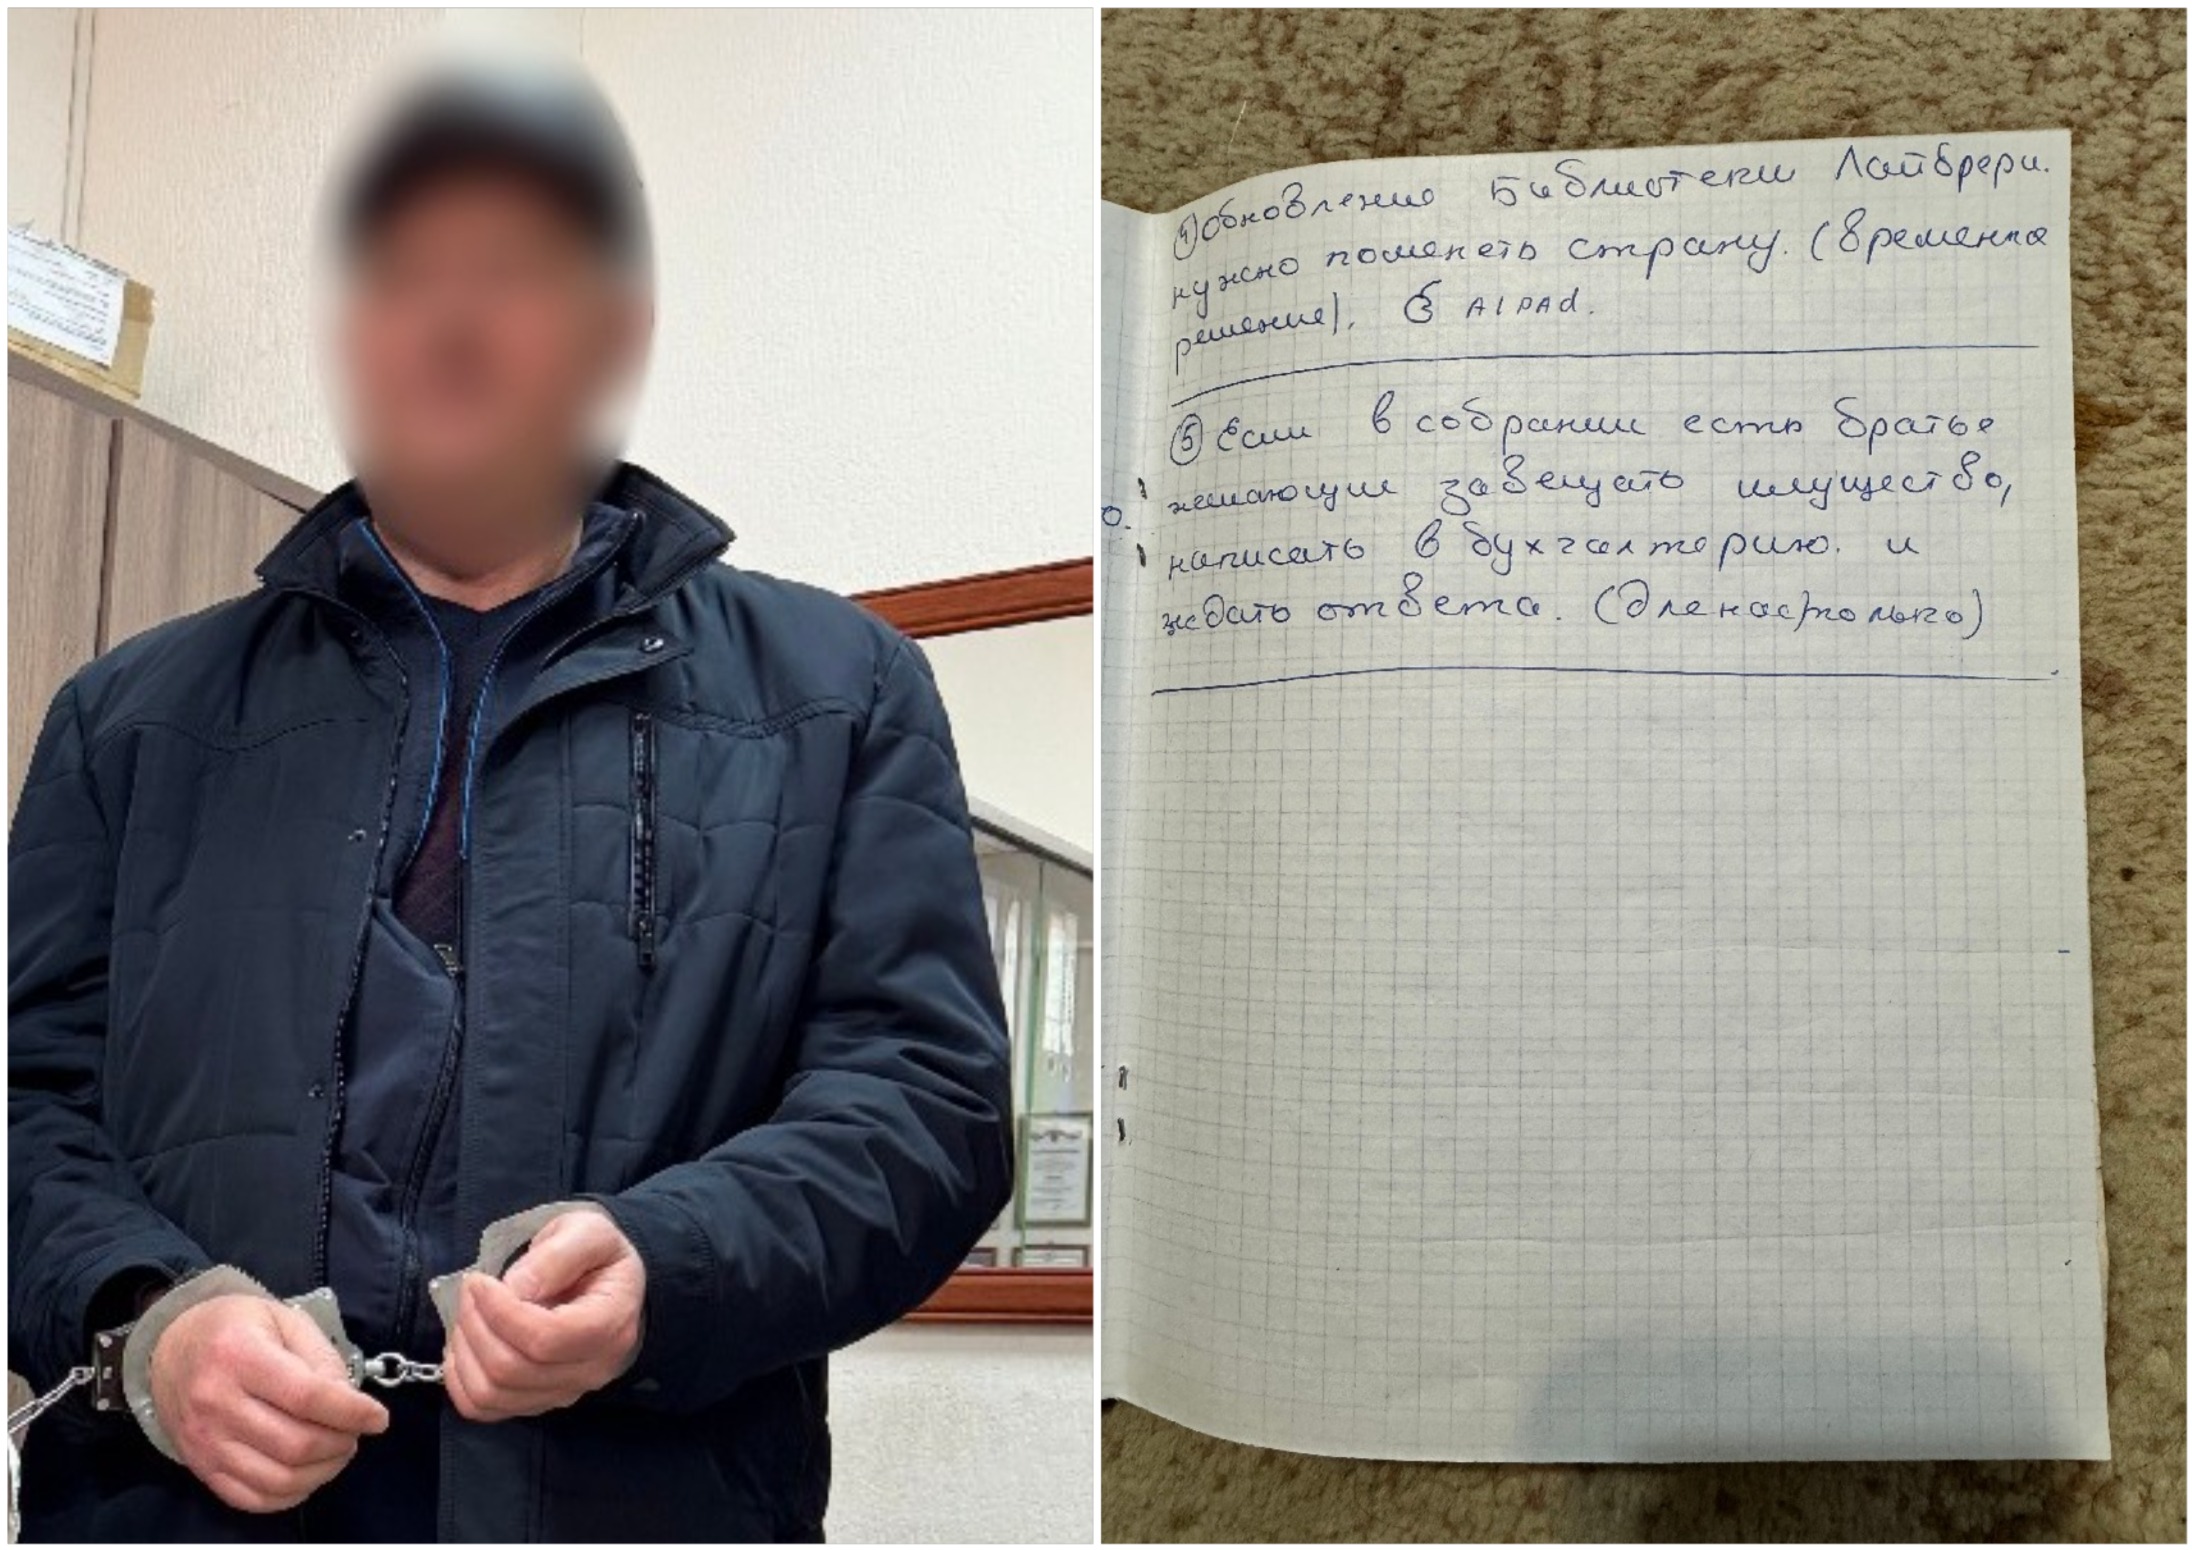 ④ Обновление Библиотеки Лайбрери.
нужно поменеть страну. (временна
решение). С AIPAd.
⑤ Если в собрании есть братье
желающие завещать имущество,
написать в бухгалтерию. и
ждать ответа. (для нас только)